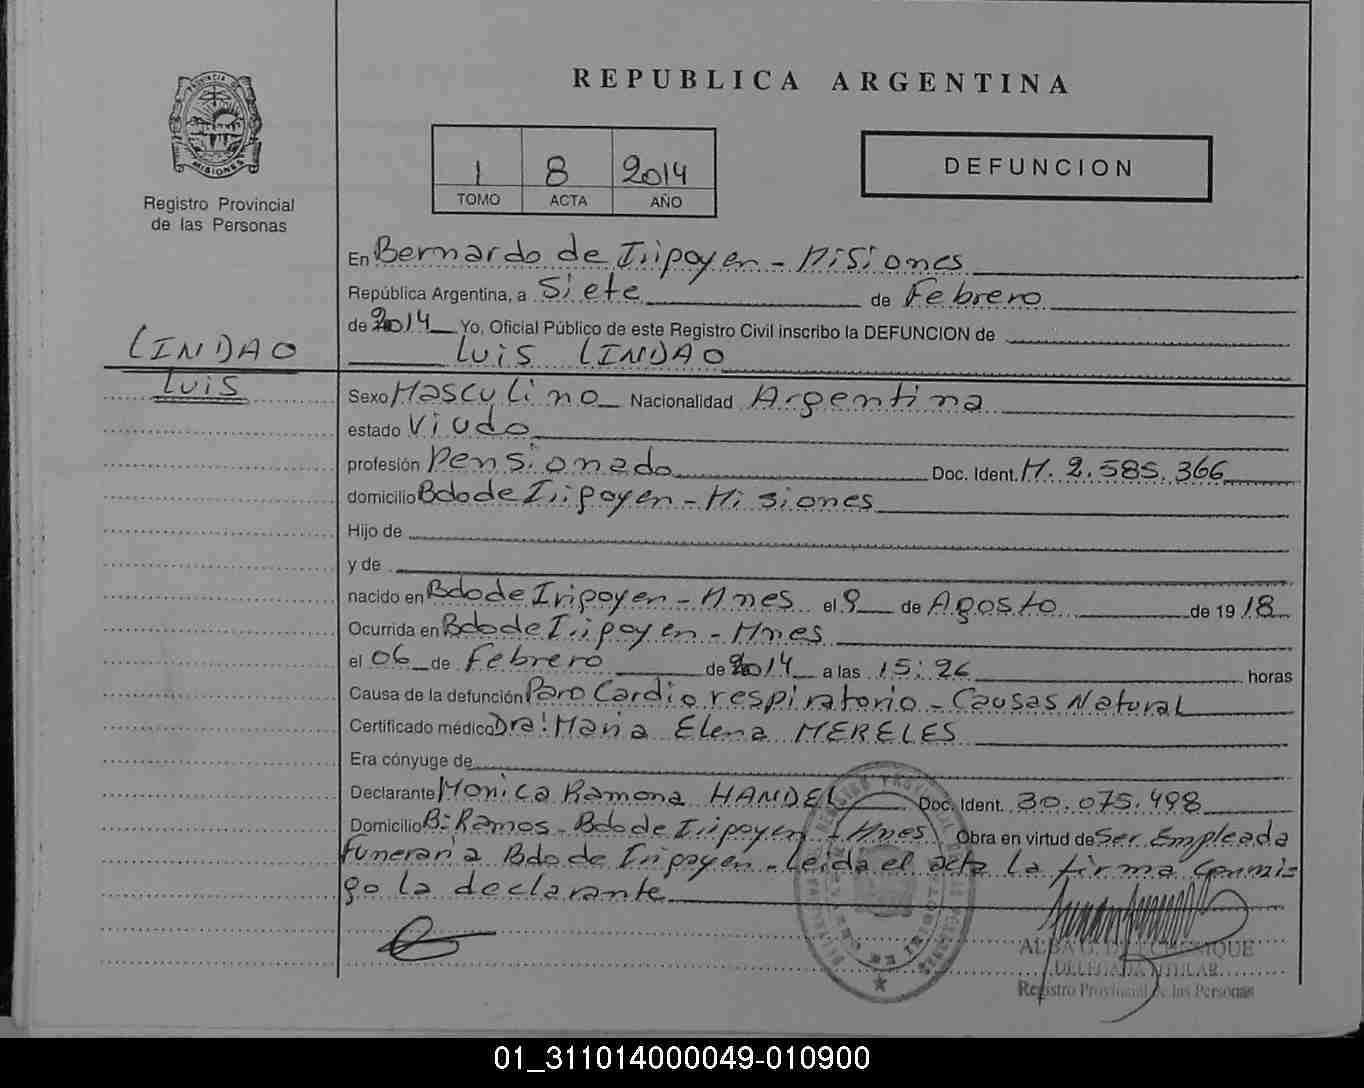 REPUBLICA ARGENTINA
PROVINCIA DE
MISIONES
Registro Provincial
de las Personas
1 8 2014
TOMO ACTA AÑO
DEFUNCION
En Bernardo de Irigoyen - Misiones
República Argentina, a Siete de Febrero
de 2014 Yo, Oficial Público de este Registro Civil inscribo la DEFUNCION de
Luis LINDAO
LINDAO
Luis
Sexo Masculino Nacionalidad Argentina
estado Viudo
profesión Pensionado Doc. Ident. M. 2.585.366
domicilio Bdo de Irigoyen - Misiones
Hijo de
y de
nacido en Bdo de Irigoyen - Mnes el 9 de Agosto de 1918
Ocurrida en Bdo de Irigoyen - Mnes
el 06 de Febrero de 2014 a las 15:26 horas
Causa de la defunción Paro Cardio respiratorio - Causas Natural
Certificado médico Dra: Maria Elena MERELES
Era cónyuge de
Declarante Monica Ramona HANDEL Doc. Ident. 30.075.498
Domicilio B: Ramos - Bdo de Irigoyen - Mnes Obra en virtud de Ser Empleada
Funeraria Bdo de Irigoyen - Leida el acta la firma conmi=
go la declarante
DELEGADA TITULAR
Registro Provincial de las Personas
01_311014000049-010900